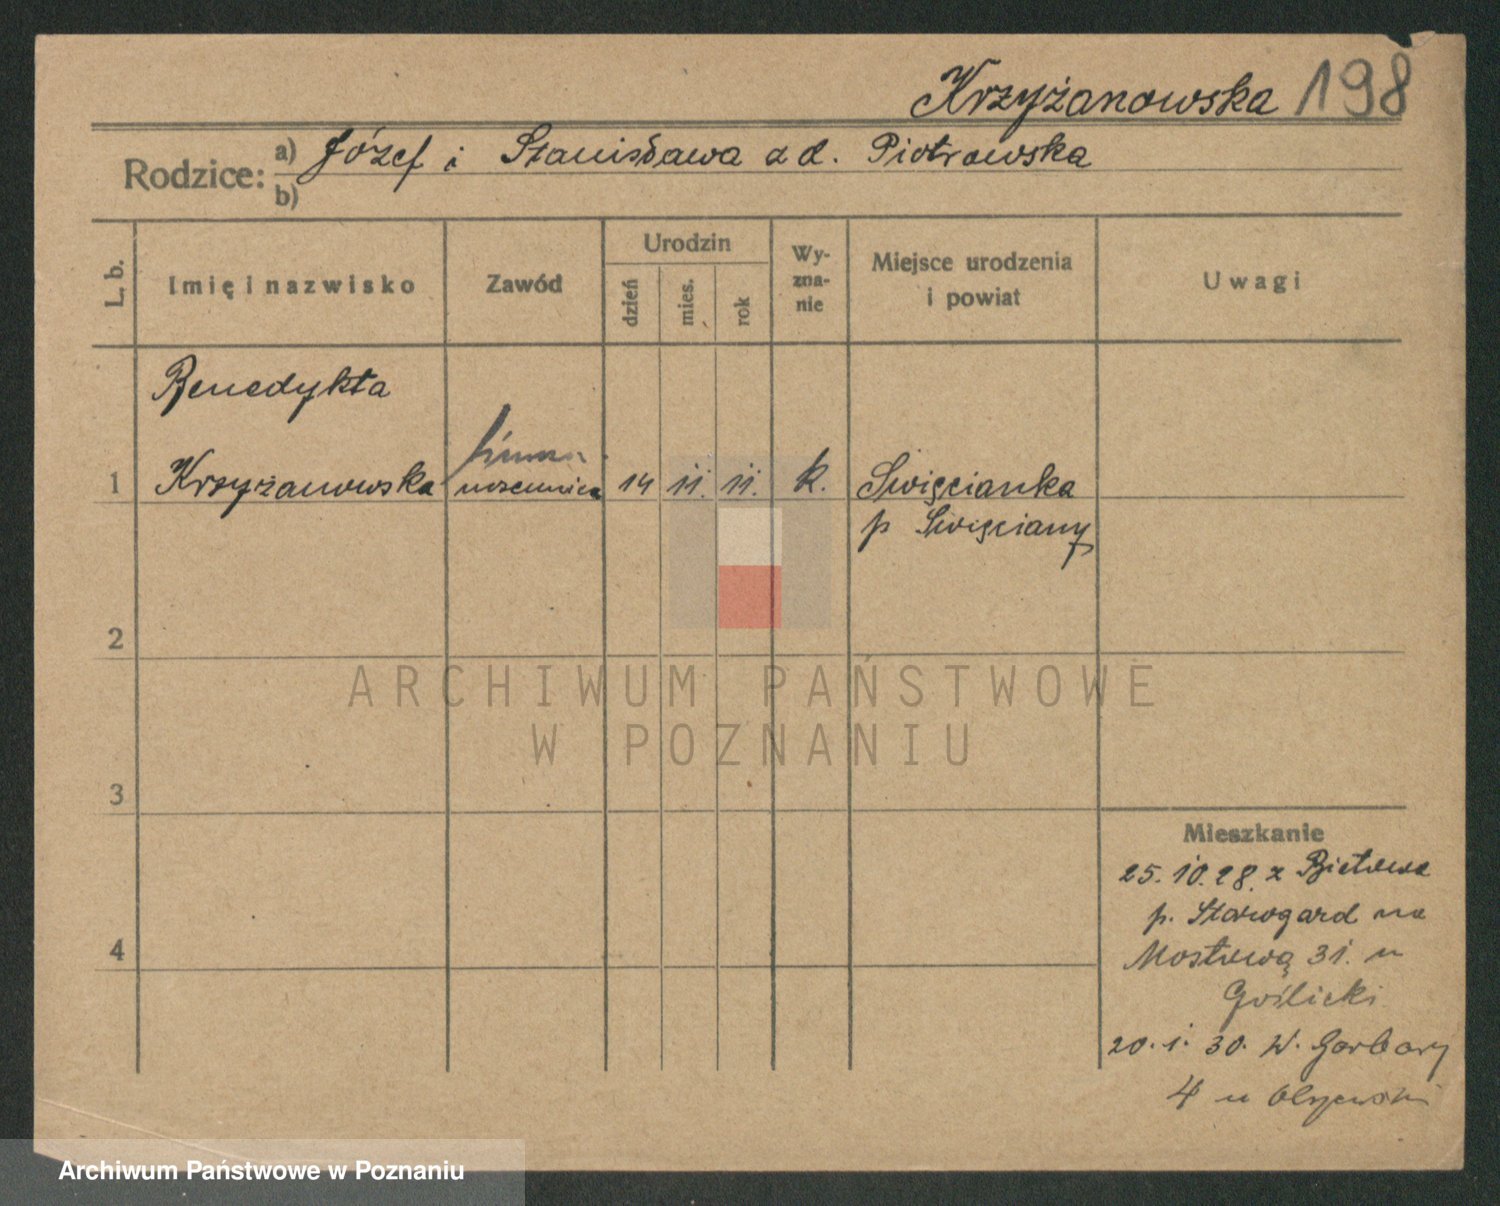 Krzyżanowska 198
Rodzice: a) Józef i Stanisława z d. Piotrowska
b)
L. b.
Imię i nazwisko
Zawód
Urodzin
dzień
mies.
rok
Wy-
zna-
nie
Miejsce urodzenia
i powiat
Uwagi
Benedykta
1 Krzyżanowska 14 11. 11. k. Święcianka
p Święciany
2
ARCHIWUM PAŃSTWOWE
W POZNANIU
3
Mieszkanie
25.10.28. z
p. Starogard na
4
Mostową 31. u
Goślicki
20. 1. 30. W. Garbary
4 u Olszewski
Archiwum Państwowe w Poznaniu